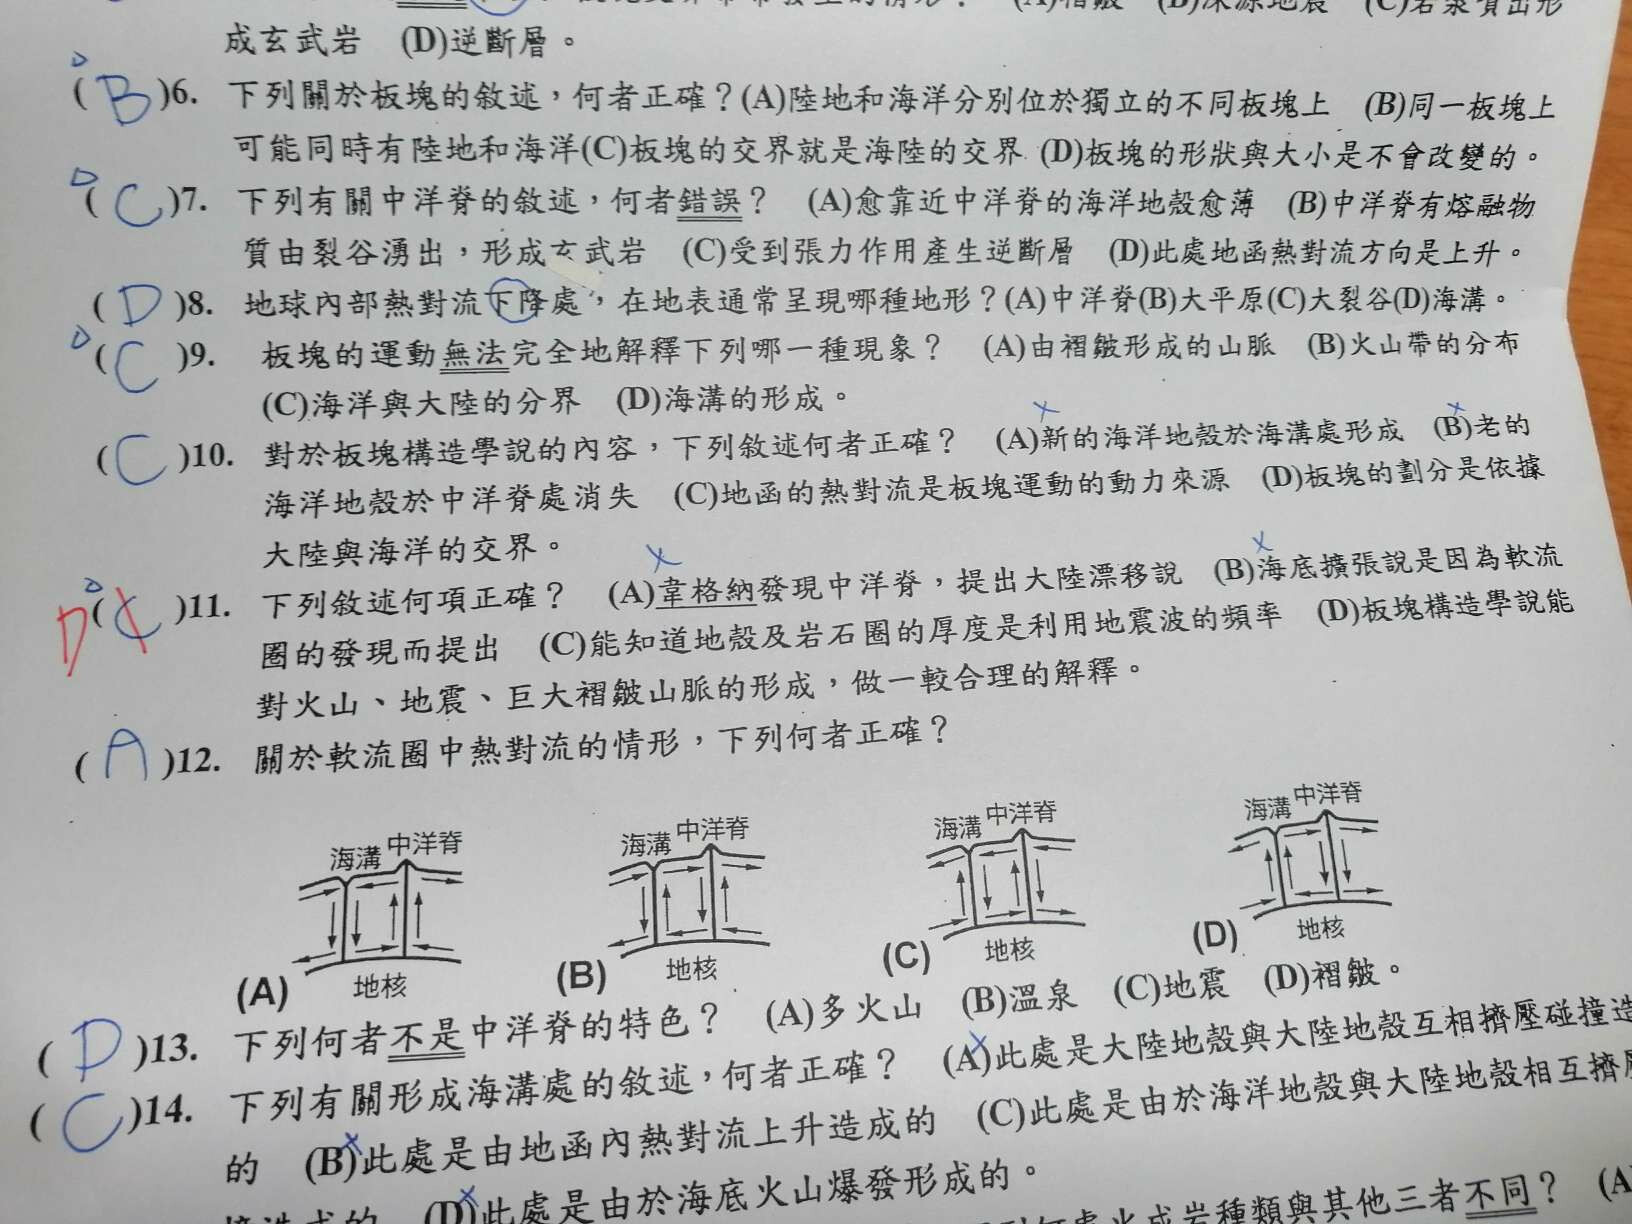 成玄武岩 (D)逆斷層。
(B)6. 下列關於板塊的敘述，何者正確？(A)陸地和海洋分別位於獨立的不同板塊上 (B)同一板塊上
可能同時有陸地和海洋(C)板塊的交界就是海陸的交界 (D)板塊的形狀與大小是不會改變的。
(C)7. 下列有關中洋脊的敘述，何者錯誤？ (A)愈靠近中洋脊的海洋地殼愈薄 (B)中洋脊有熔融物
質由裂谷湧出，形成玄武岩 (C)受到張力作用產生逆斷層 (D)此處地函熱對流方向是上升。
(D)8. 地球內部熱對流下降處，在地表通常呈現哪種地形？(A)中洋脊(B)大平原(C)大裂谷(D)海溝。
(C)9. 板塊的運動無法完全地解釋下列哪一種現象？ (A)由褶皺形成的山脈 (B)火山帶的分布
(C)海洋與大陸的分界 (D)海溝的形成。
(C)10. 對於板塊構造學說的內容，下列敘述何者正確？ (A)新的海洋地殼於海溝處形成 (B)老的
海洋地殼於中洋脊處消失 (C)地函的熱對流是板塊運動的動力來源 (D)板塊的劃分是依據
大陸與海洋的交界。
D(C)11. 下列敘述何項正確？ (A)韋格納發現中洋脊，提出大陸漂移說 (B)海底擴張說是因為軟流
圈的發現而提出 (C)能知道地殼及岩石圈的厚度是利用地震波的頻率 (D)板塊構造學說能
對火山、地震、巨大褶皺山脈的形成，做一較合理的解釋。
(A)12. 關於軟流圈中熱對流的情形，下列何者正確？
海溝 中洋脊 海溝 中洋脊 海溝 中洋脊 海溝 中洋脊
(A) 地核 (B) 地核 (C) 地核 (D) 地核
(D)13. 下列何者不是中洋脊的特色？ (A)多火山 (B)溫泉 (C)地震 (D)褶皺。
(C)14. 下列有關形成海溝處的敘述，何者正確？ (A)此處是大陸地殼與大陸地殼互相擠壓碰撞造
的 (B)此處是由地函內熱對流上升造成的 (C)此處是由於海洋地殼與大陸地殼相互擠
(D)此處是由於海底火山爆發形成的。
火成岩種類與其他三者不同？ (A